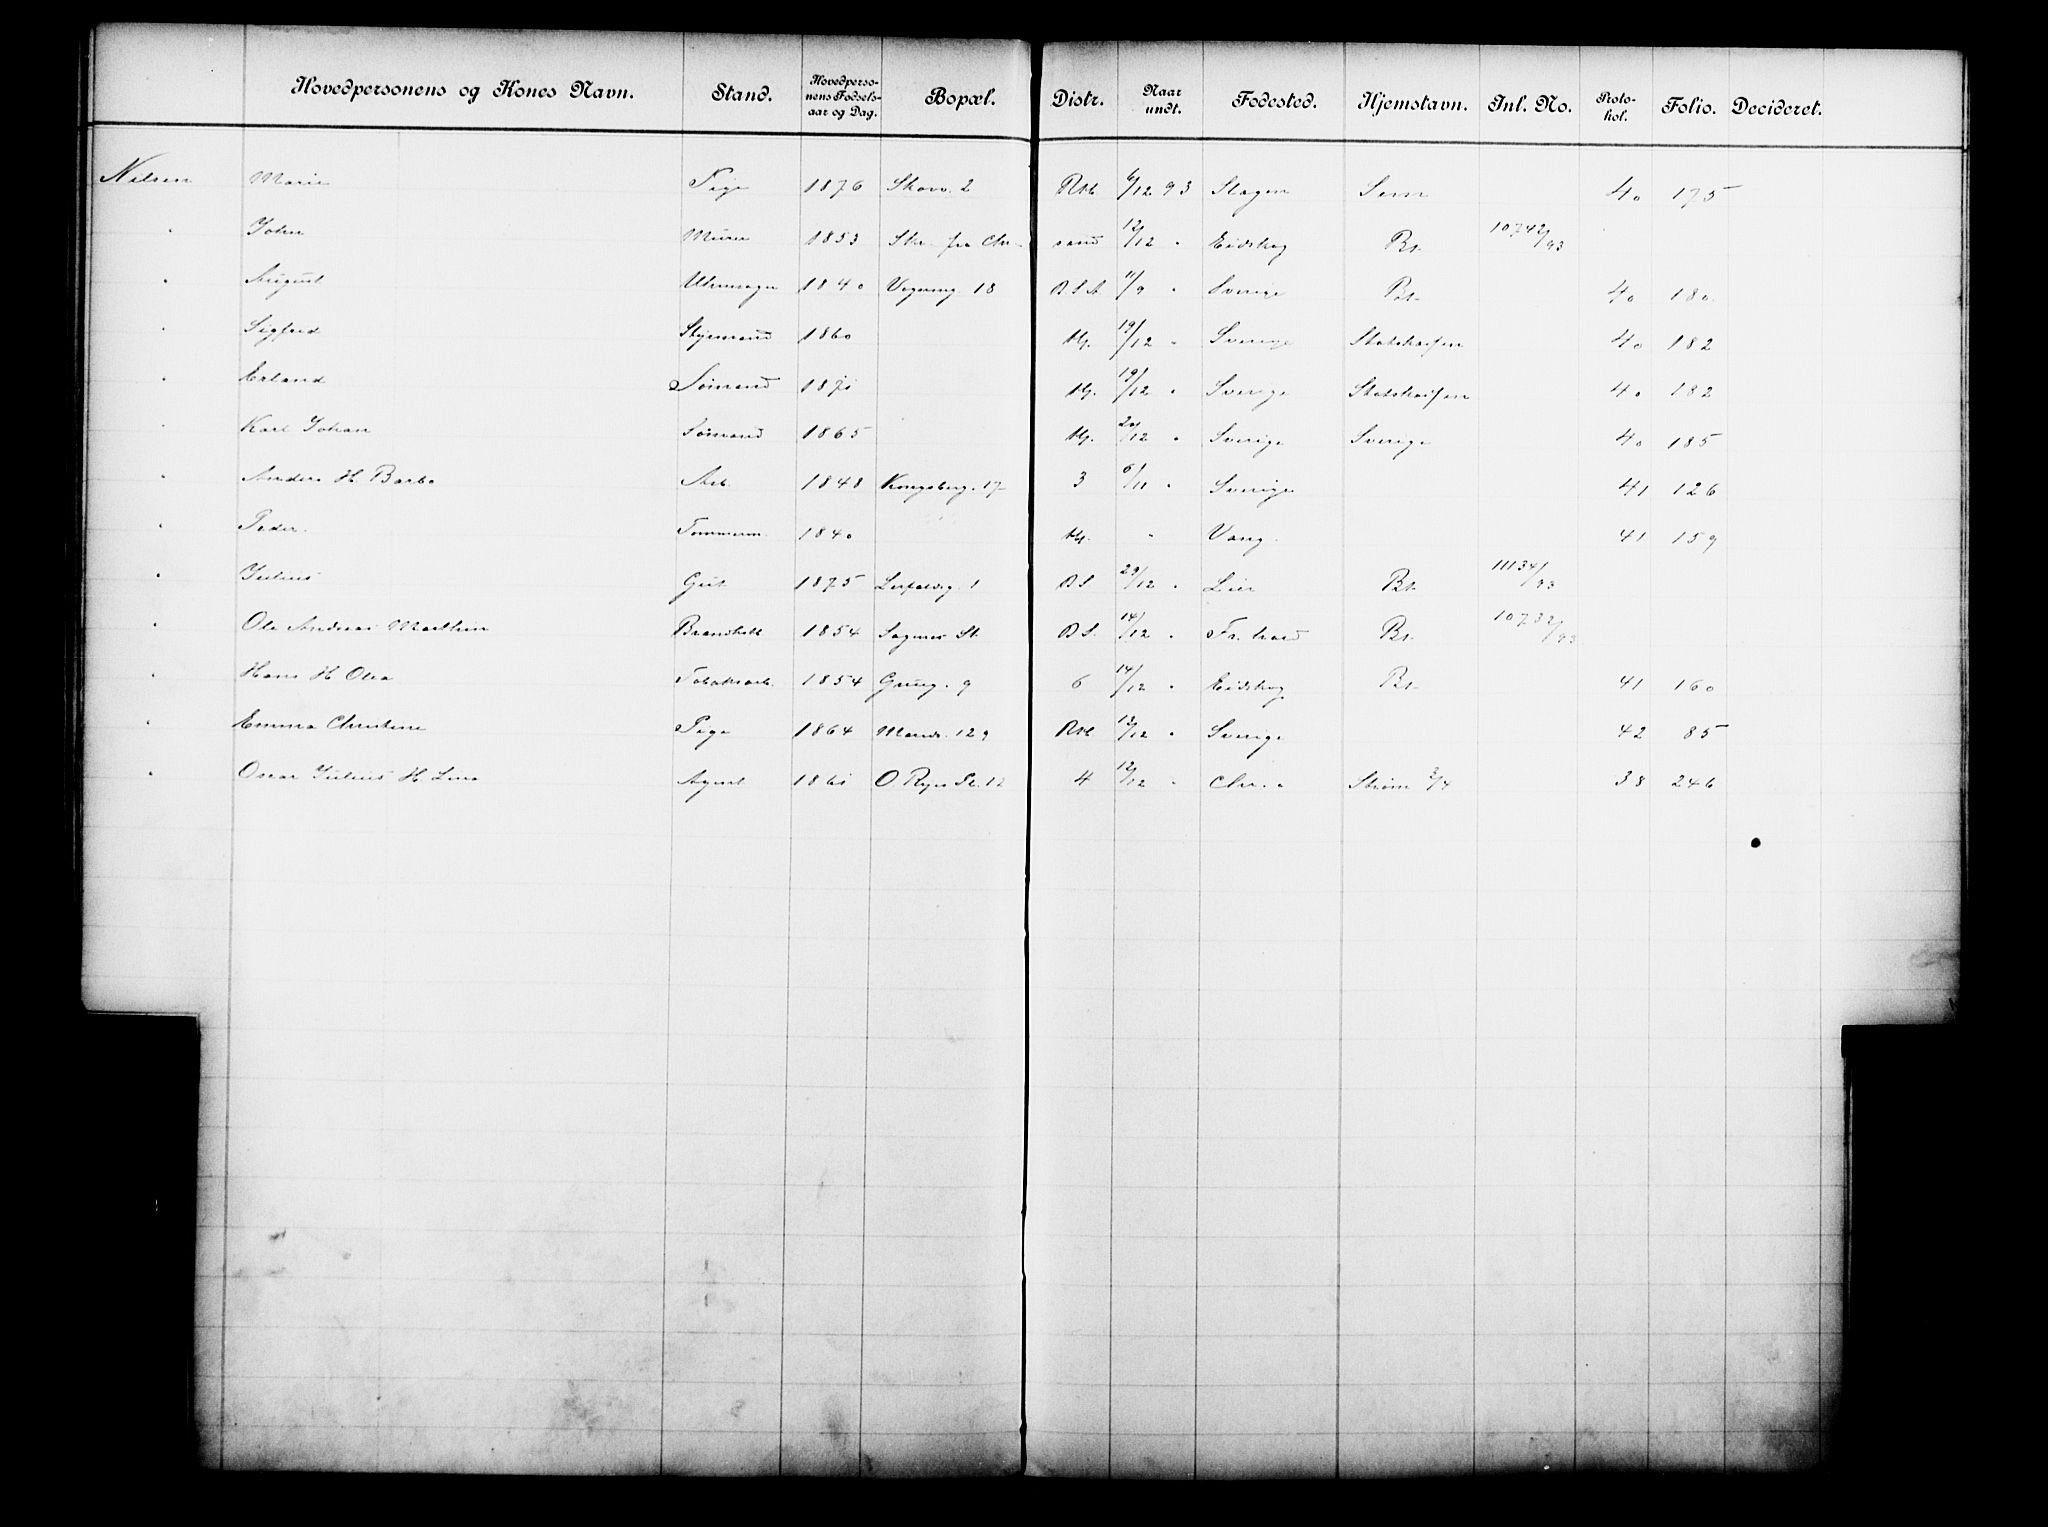 Hovedpersonens og Kones Navn. Stand. Hovedperso-nens Fødsels-aar og Dag. Bopæl. Distr. Naar undt. Fødested. Hjemstavn. Inl. No. Proto-kol. Folio. Decideret.
Nilsen Marie Pige 1876 Skovv. 2 6/12 93 Slagen Sem 40 175
" John Murer 1853 Skr. fra Chr- sand 12/12 " Eidskog Bt. 10742/93
" August Uhrmager 1840 18 11/9 " Sverige Bt. 40 180
" Sigfred 1860 19/12 " Sverige 40 182
" Erland Sømand 1871 19/12 " Sverige 40 182
" Karl Johan Sømand 1865 20/12 " Sverige Sverige 40 185
" Anders H. Barbo Arb. 1848 Kongsberg. 17 3 6/11 " Sverige 41 126
" Peder Tømmerm. 1840 " Vang 41 159
" Julius Gut 1875 1 B S 29/12 " Lier Bt. 11134/93
" Ole Andreas Marthin 1854 Sagenes St. B S. 14/12 " Bt. 10732/93
" Hans H. Olea Tobaksarb. 1854 Grüng. 9 6 14/12 " Eidskog Bt. 41 160
" Emma Christine Pige 1864 Marids. 129 13/12 " Sverige 42 85
" Oscar Julius H. Lina Agent 1861 O. Ryes Pl. 12 4 12/12 " Chr.a Strøm 2/4 38 246